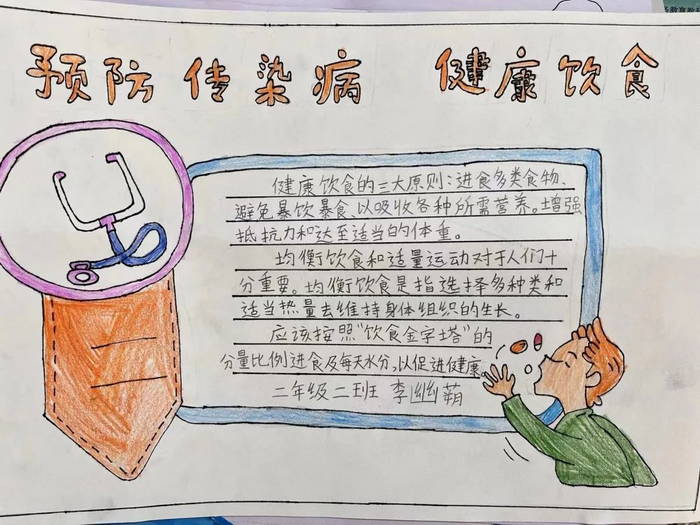 预防传染病 健康饮食
健康饮食的三大原则:进食多类食物、
避免暴饮暴食、以吸收各种所需营养。增强
抵抗力和达至适当的体重。
均衡饮食和适量运动对于人们十
分重要。均衡饮食是指选择多种类和
适当热量去维持身体组织的生长。
应该按照"饮食金字塔"的
分量比例进食及每天水分,以促进健康。
二年级二班 李幽蒴